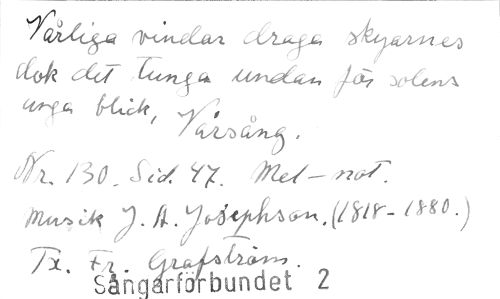 Vårliga vindar draga skyarnes
dok det tunga undan för solens
unga blick, Vårsång.
Nr. 130. Sid. 47. Mel-not.
Musik J. A. Josephson. (1818-1880.)
Tx. Fr. Grafström.
Sångarförbundet 2